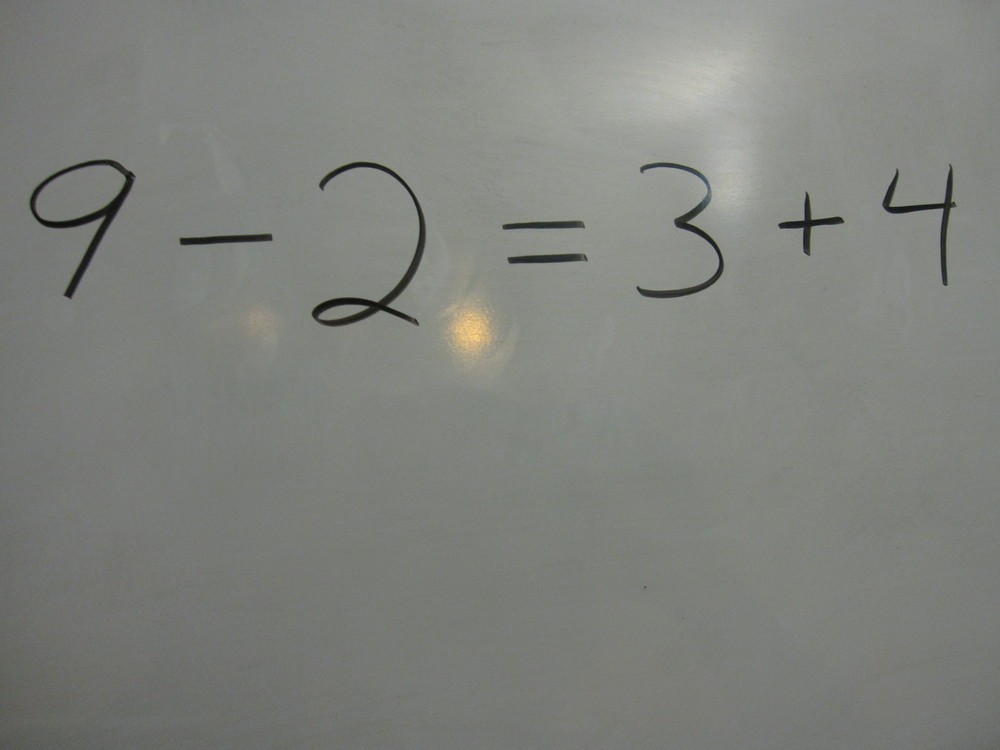 9 - 2 = 3 + 4